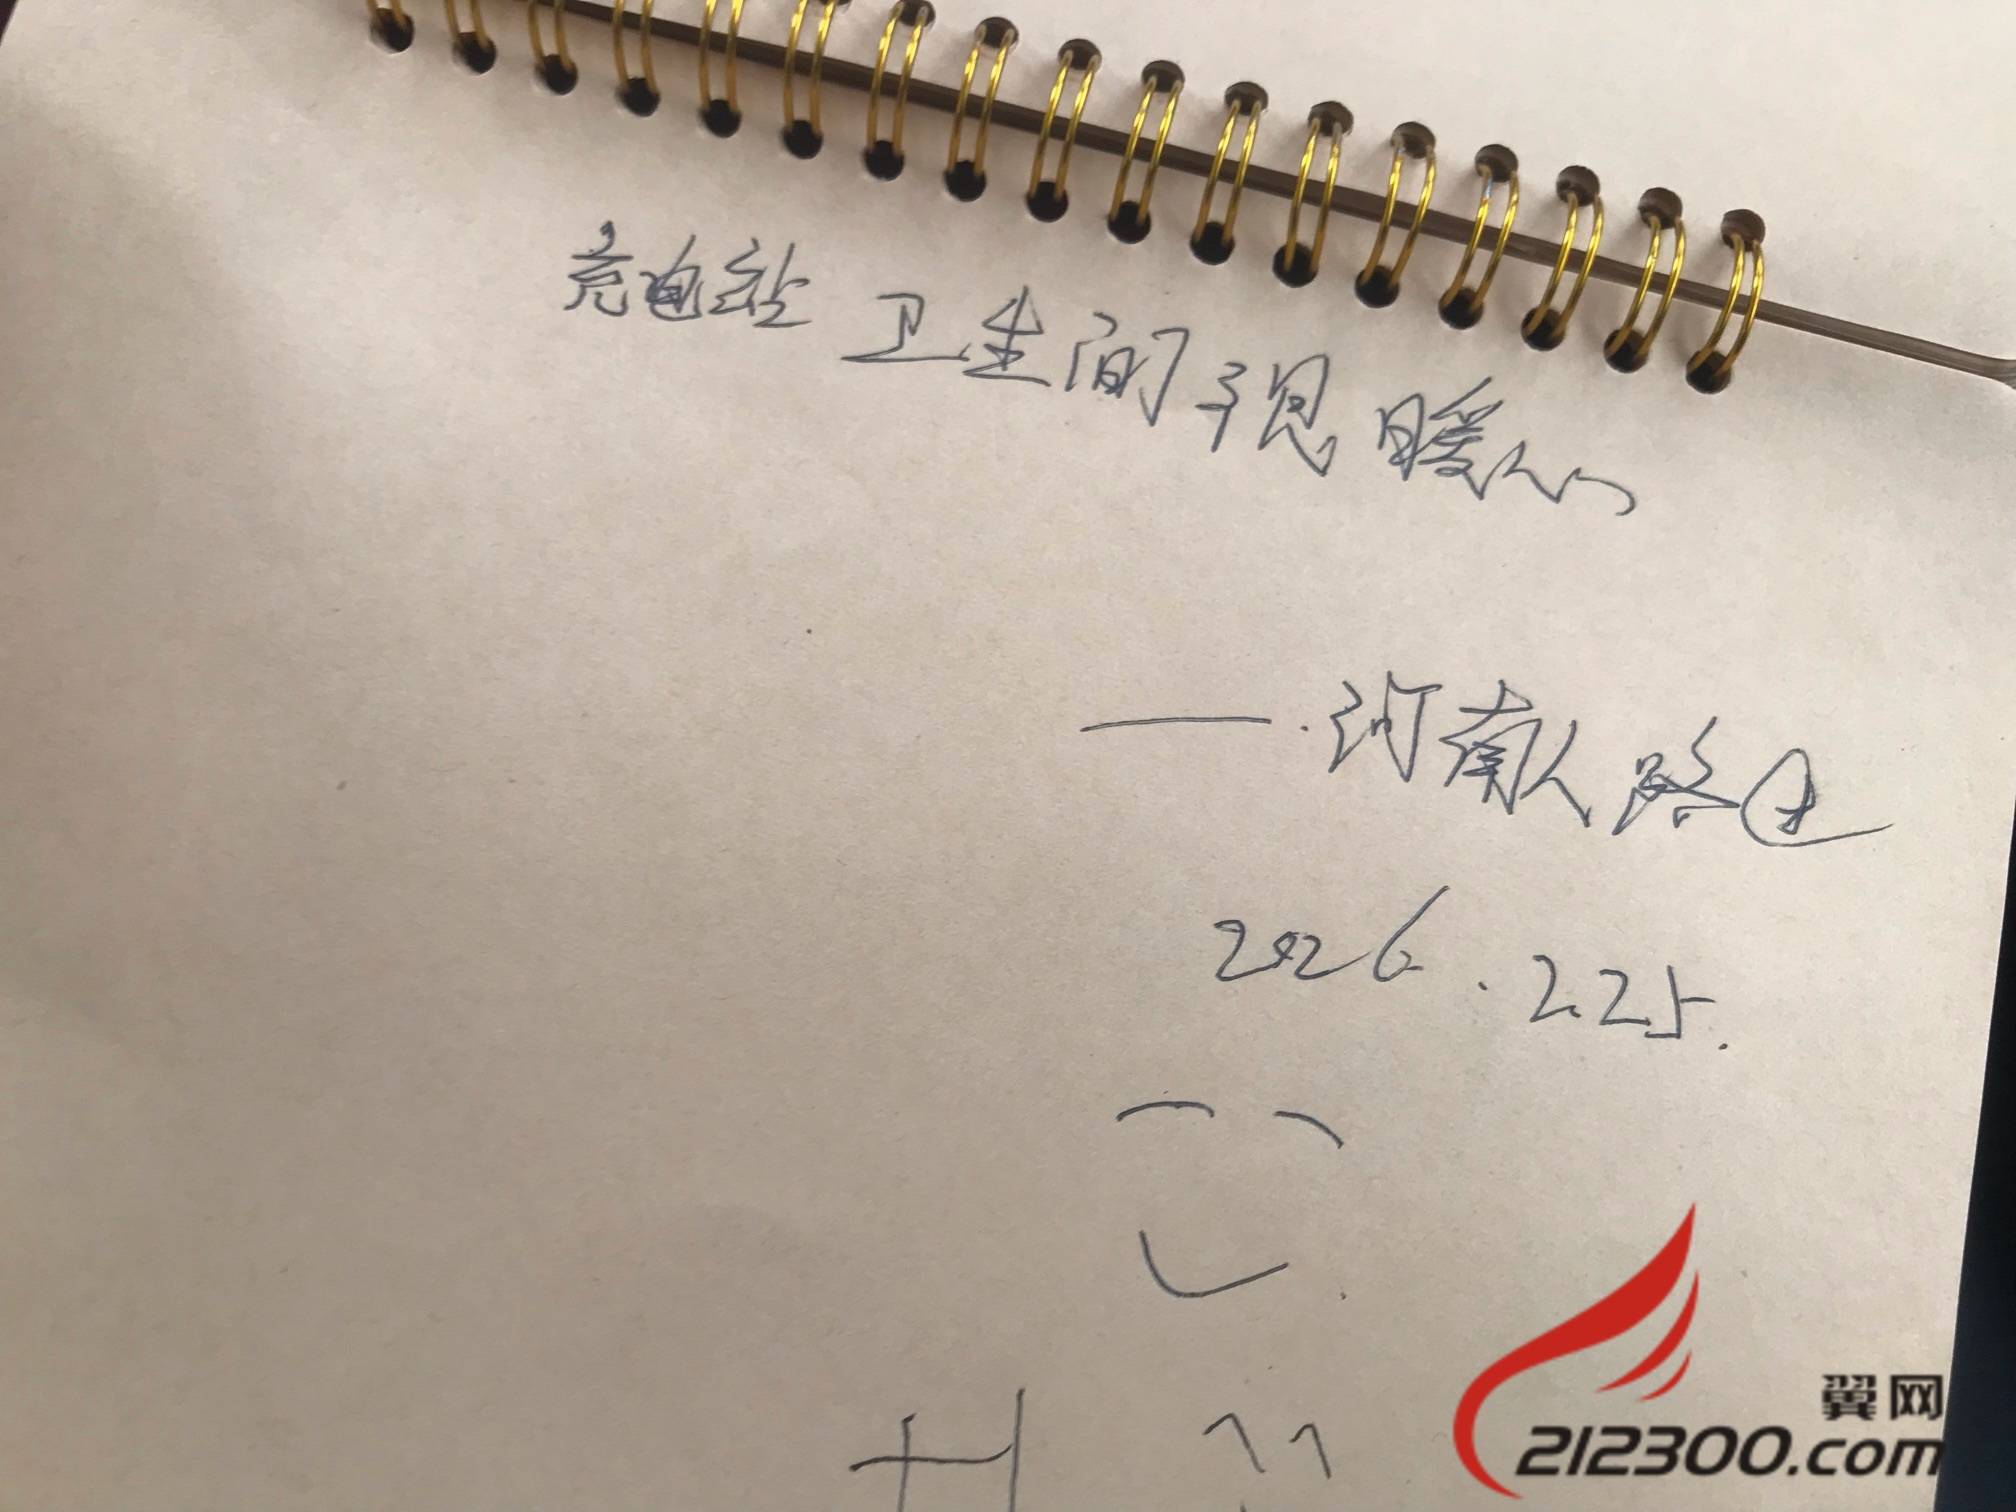 充电站 卫生间 很 暖心
——.河南人路过
2026.2.25.
翼网
212300.com